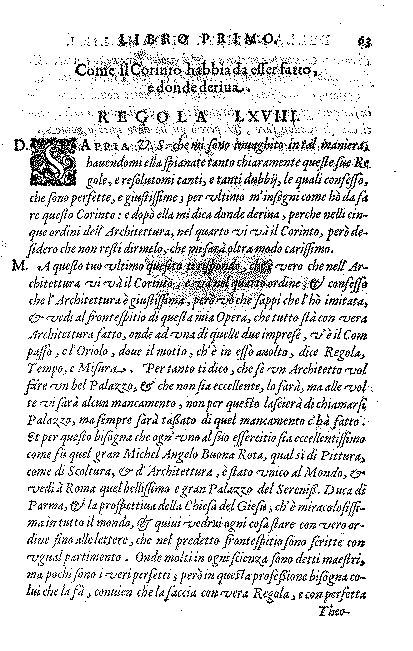 LIBRO PRIMO. 63
Come il Corinto habbia da esser fatto,
e donde deriua.
REGOLA LXVIII.
D. SAPPIA V. S. che mi sono inuaghito in tal maniera,
hauendomi ella spianate tanto chiaramente queste sue Re
gole, e resolutomi tanti, e tanti dubbij, le quali confesso,
che sono perfette, e giustissime; per vltimo m'insegni come hò da fa
re questo Corinto: e dopò ella mi dica donde deriua, perche nelli cin-
que ordini dell'Architettura, nel quarto vi và il Corinto, però de-
sidero che non resti dirmelo, che mi sarà oltra modo carissimo.
M. A questo tuo vltimo quesito ti rispondo, che è vero che nell'Ar-
chitettura vi và il Corinto, e và nel quarto ordine; & confesso
che l'Architettura è giustissima, però vò che sappi che l'hò imitata,
& vedi al frontespitio di questa mia Opera, che tutto stà con vera
Architettura fatto, onde ad vna di quelle due imprese, v'è il Com
passo, e l'Oriolo, doue il motto, ch'è in esso auolto, dice Regola,
Tempo, e Misura. Per tanto ti dico, che se vn Architetto vol
fare vn bel Palazzo, & che non sia eccellente, lo farà, ma alle vol
te vi sarà alcun mancamento, non per questo lascierà di chiamarsi
Palazzo, ma sempre sarà tassato di quel mancamento c'hà fatto.
Et per questo bisogna che ogn'vno al suo essercitio sia eccellentissimo
come fù quel gran Michel Angelo Buona Rota, qual sì di Pittura,
come di Scoltura, & d'Architettura, è stato vnico al Mondo, &
vedi à Roma quel bellissimo e gran Palazzo del Sereniss. Duca di
Parma, & la prospettiua della Chiesa del Giesù, ch'è miracolosissi-
ma in tutto il mondo, & quiui vedrai ogni cosa stare con vero or-
dine fino alle lettere, che nel predetto frontespitio sono scritte con
vgual partimento. Onde molti in ogni scienza sono detti maestri,
ma pochi sono i veri perfetti; però in questa professione bisogna co-
lui che la fà, conuien che la faccia con vera Regola, e con perfetta
Theo-